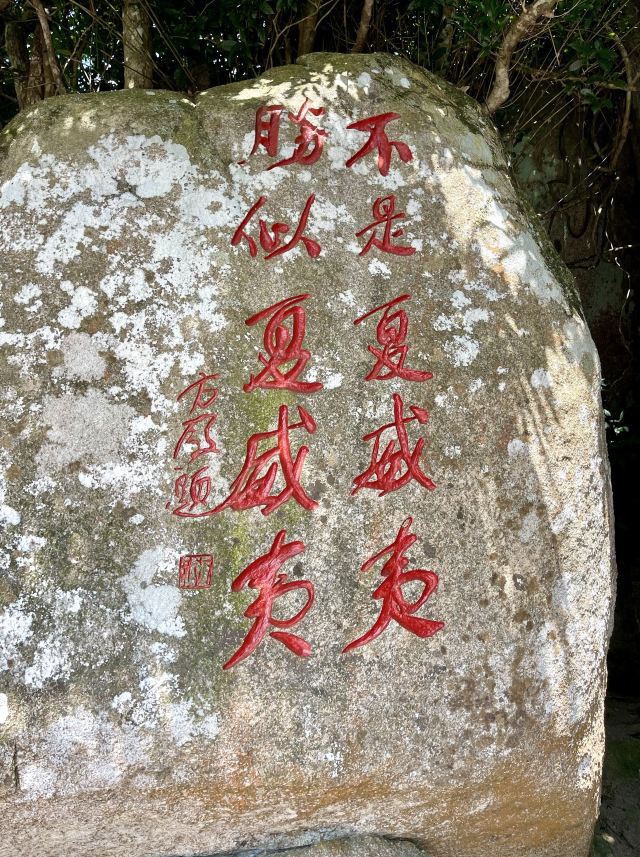 不是夏威夷
勝似夏威夷
方题